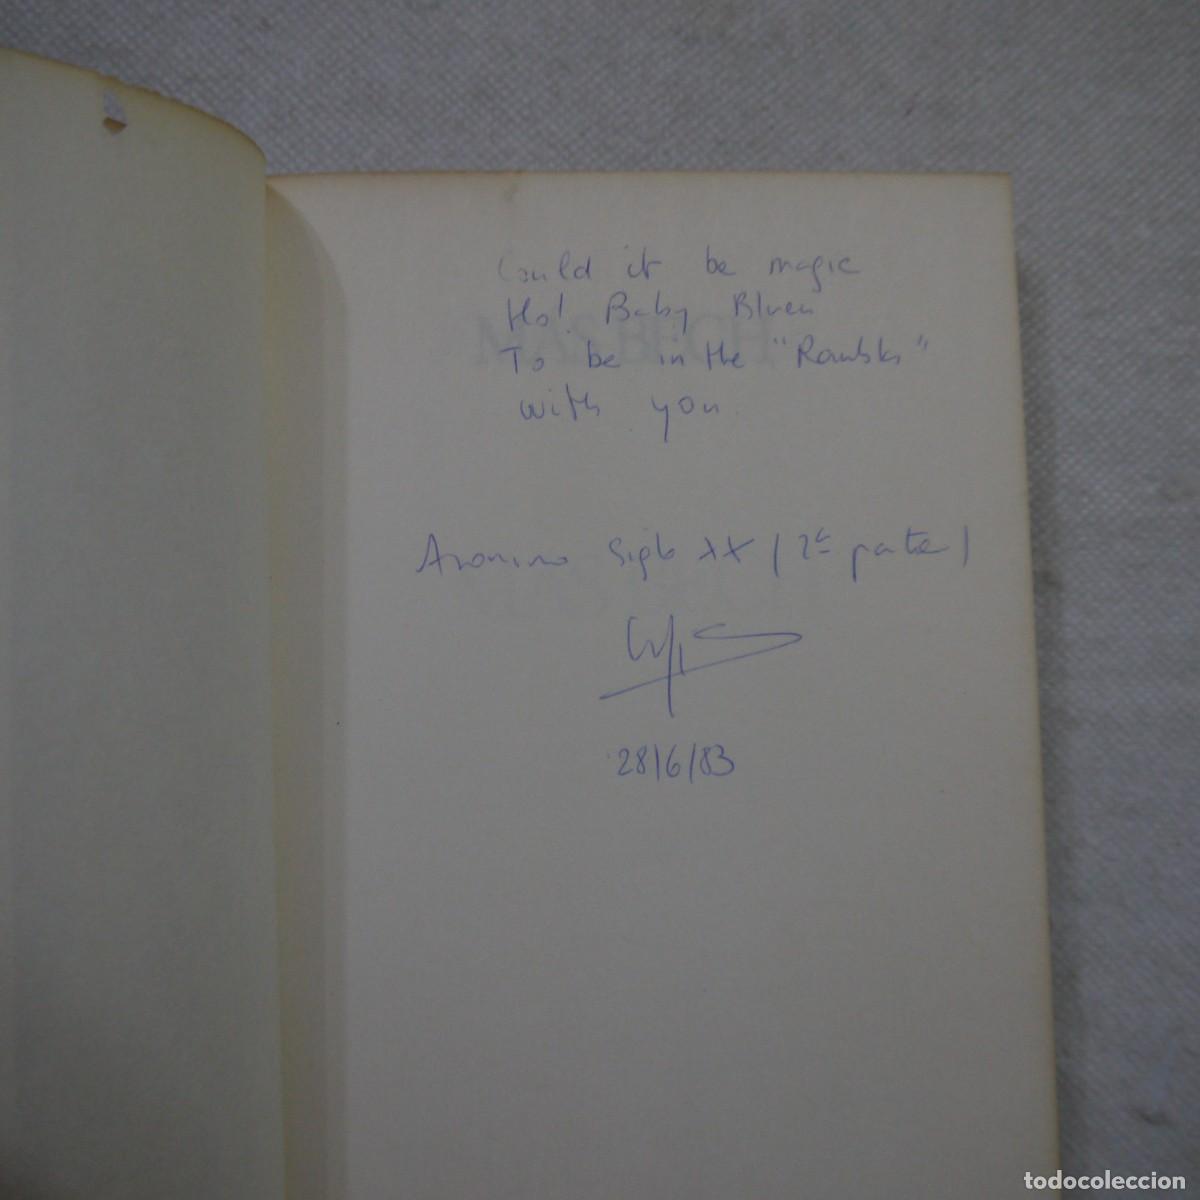 Could it be magic
Ho! Baby Blues
To be in the "Rambles"
with you.
Anonimo Siglo XX (2ª parte)
28/6/83
todocoleccion